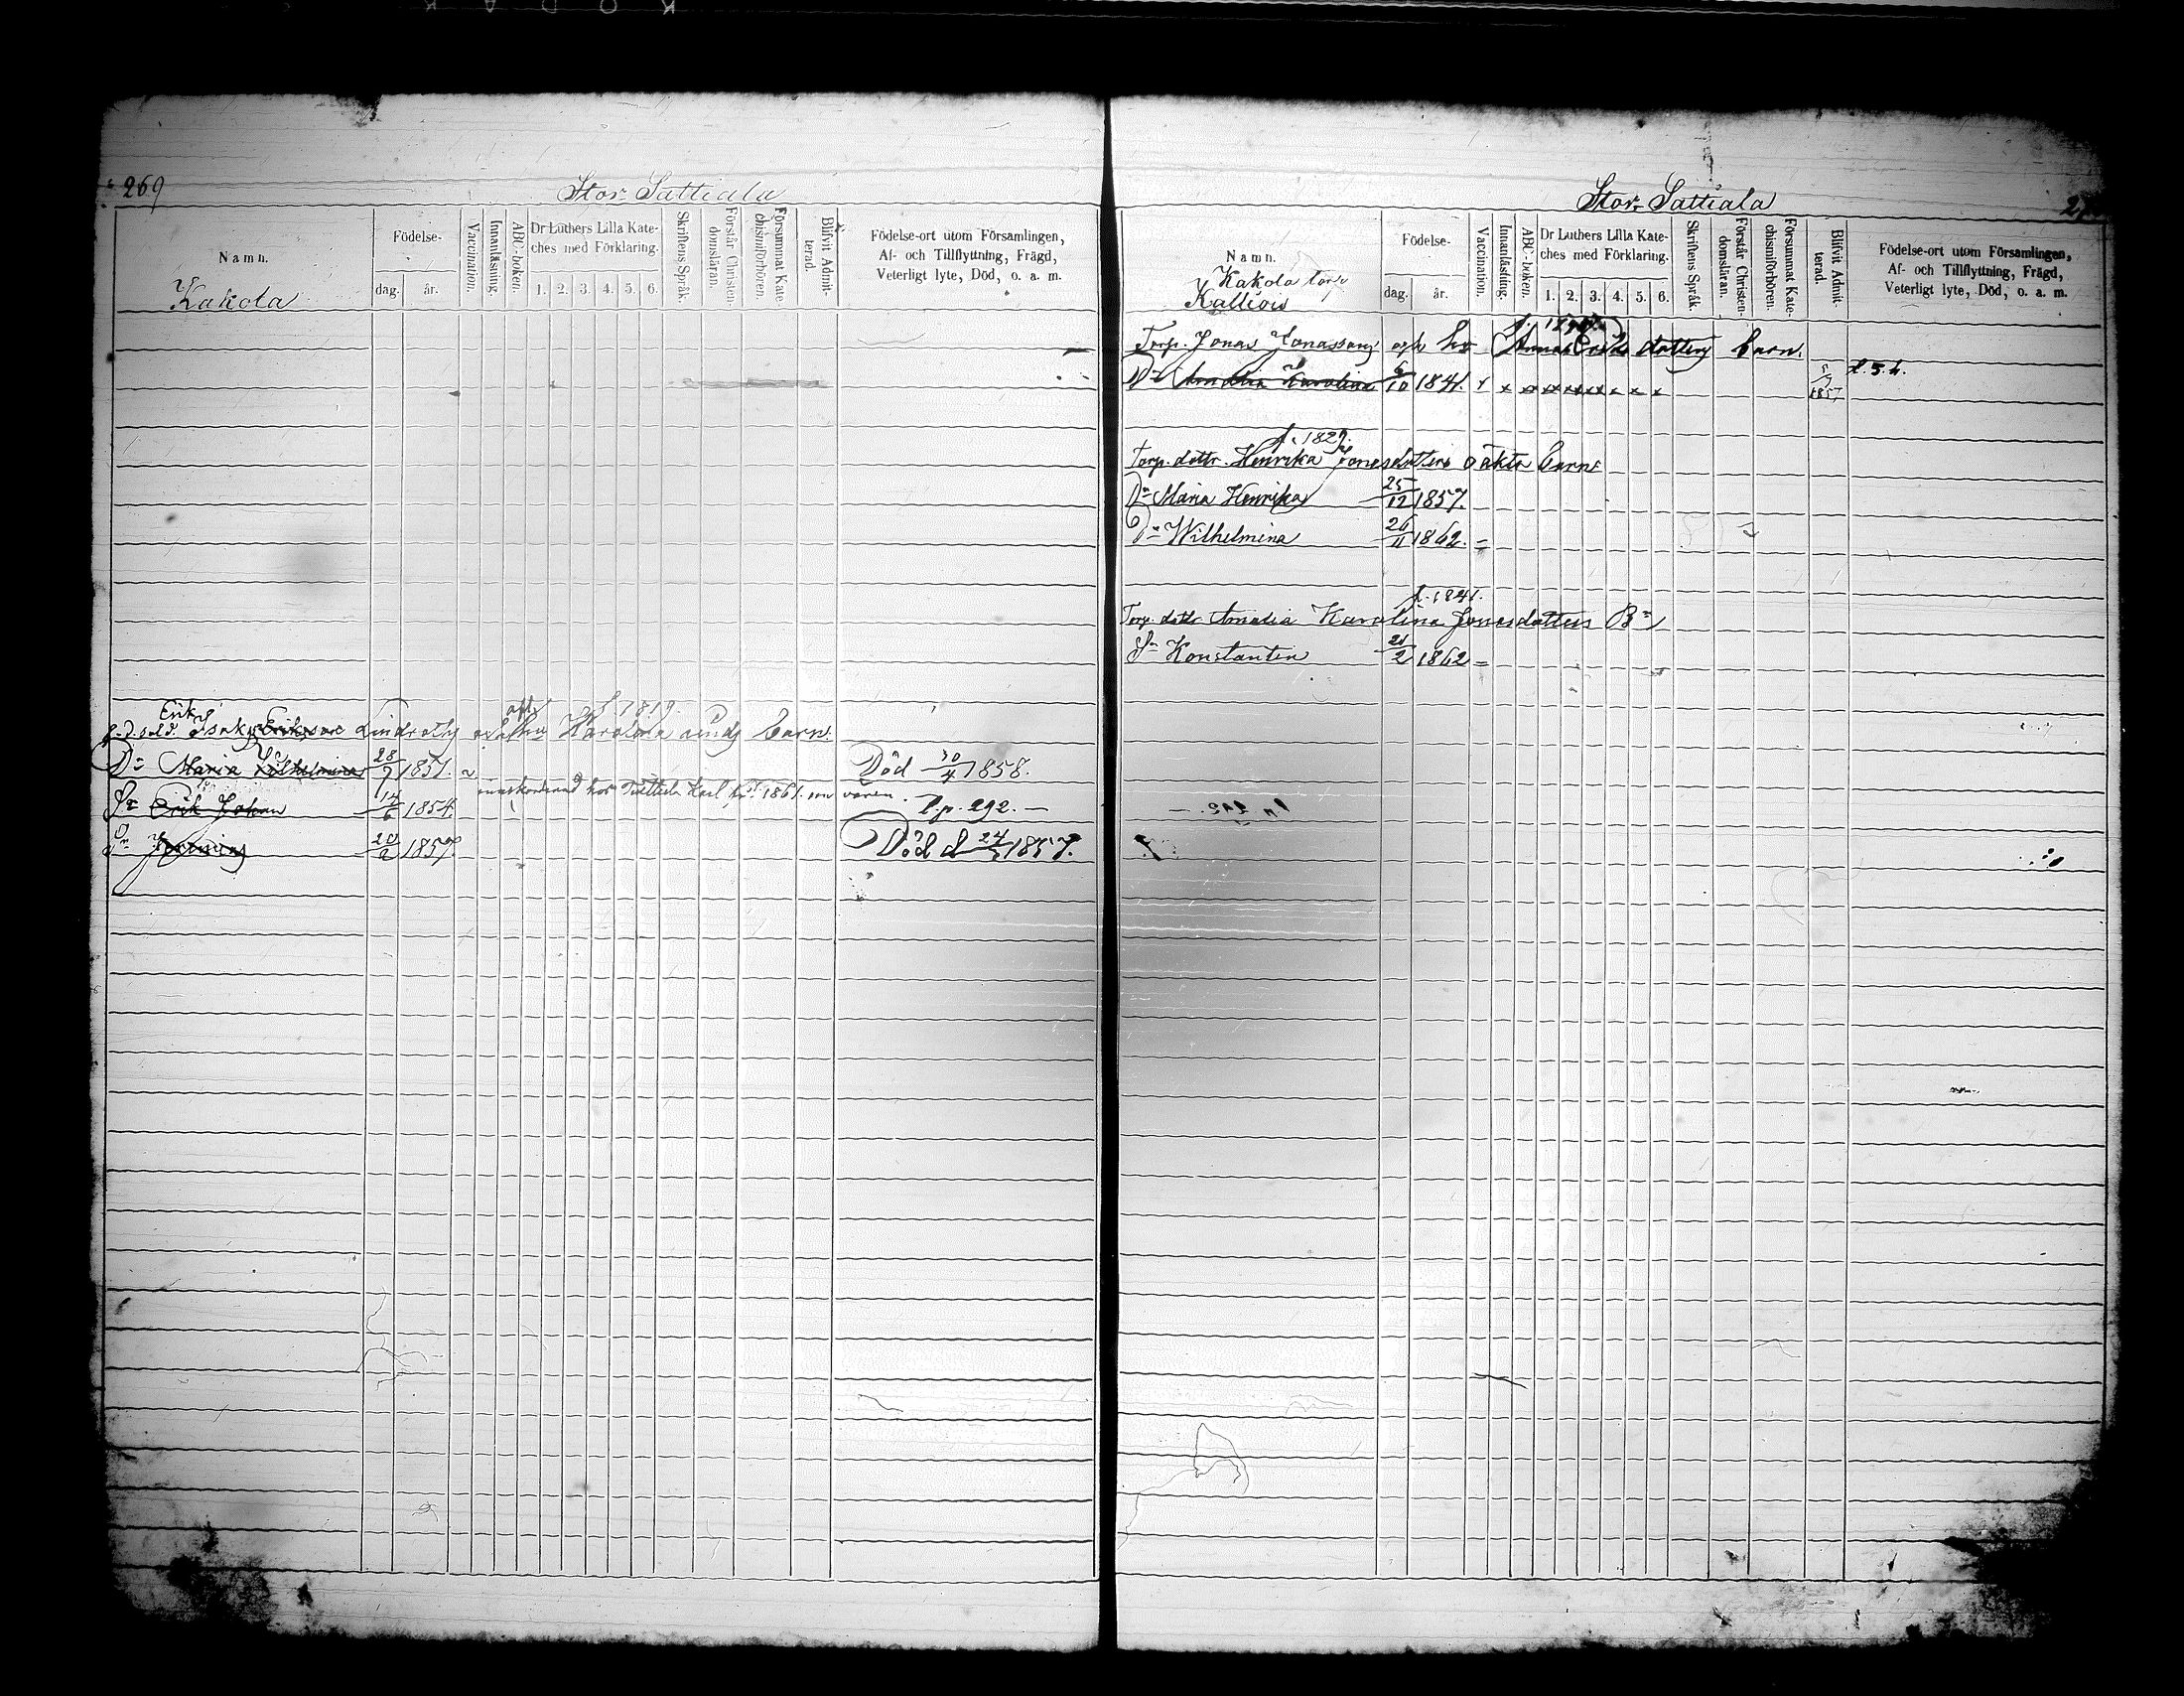 269
Stor Sattiala
Namn.
Kakola
Födelse-
dag.
år.
Vaccination.
Innanläsning.
ABC-boken.
Dr Luthers Lilla Kate-
ches med Förklaring.
1. 2. 3. 4. 5. 6.
Skriftens Språk.
Förstår Christen-
domsläran.
Försummat Kate-
chismiförhören.
Blifvit Admit-
terad.
Födelse-ort utom Församlingen,
Af- och Tillflyttning, Frägd,
Veterligt lyte, Död, o. a. m.
Erik
f. 1819.
f.d. sold. Isak Eriksson Karolina barn.
Dr Maria Wilhelmina 28/7 1851. Död 30/4 1858.
hos Karl 1861. våren.
Sn Erik Johan 14/6 1854. l.p. 292.
Sn 20/2 1857. Död d 24/5 1857.
Stor Sattiala
Namn.
Kakola torp
Kalliois
Födelse-
dag.
år.
Vaccination.
Innanläsning.
ABC-boken.
Dr Luthers Lilla Kate-
ches med Förklaring.
1. 2. 3. 4. 5. 6.
Skriftens Språk.
Förstår Christen-
domsläran.
Försummat Kate-
chismiförhören.
Blifvit Admit-
terad.
Födelse-ort utom Församlingen,
Af- och Tillflyttning, Frägd,
Veterligt lyte, Död, o. a. m.
Torp. Jonas Jonassons och hu Anna dotters barn.
Dr Amalia Karolina 6/10 1841. 1857
f. 1827.
Torp. dottr. Henrika Jonasdotters oäkta barn
Dr Maria Henrika 25/12 1857.
Dr Wilhelmina 26/11 1862.
f. 1841.
Torp. dottr Amalia Karolina Jonasdotters Bn
Sn Konstantin 21/2 1862